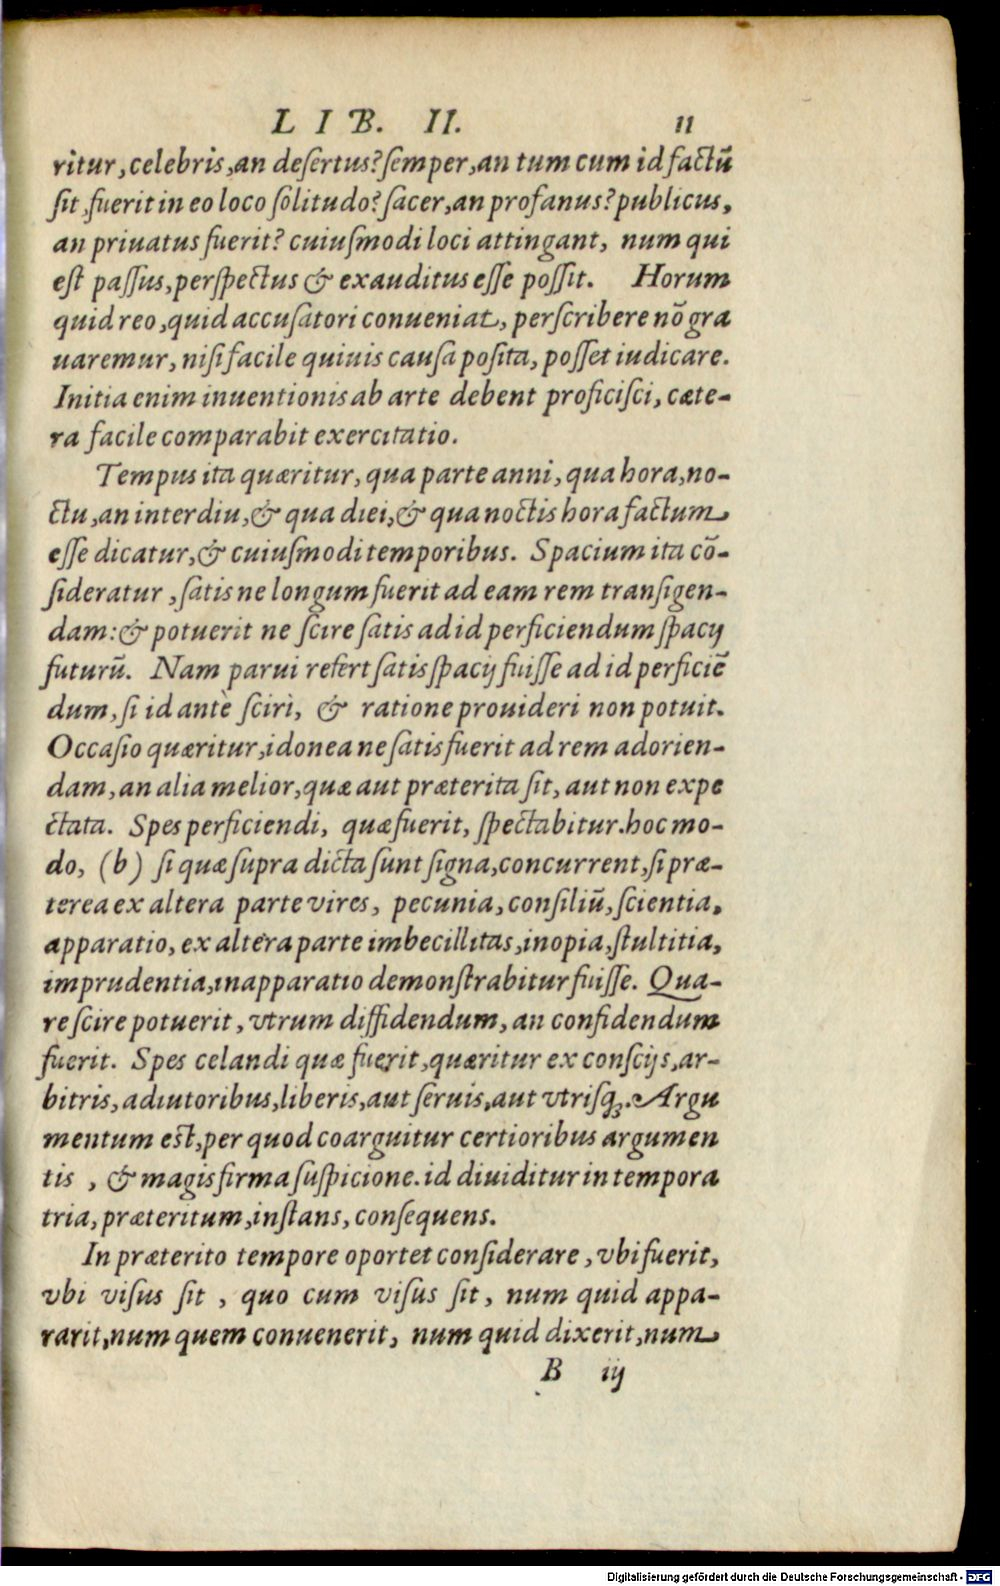 LIB. II. 11
ritur, celebris, an deſertus? ſemper, an tum cum id factū
ſit, fuerit in eo loco ſolitudo? ſacer, an profanus? publicus,
an priuatus fuerit? cuiuſmodi loci attingant, num qui
eſt paſſus, perſpectus & exauditus eſſe poſſit. Horum
quid reo, quid accuſatori conueniat, perſcribere nō gra
uaremur, niſi facile quiuis cauſa poſita, poſſet iudicare.
Initia enim inuentionis ab arte debent proficiſci, cæte-
ra facile comparabit exercitatio.
Tempus ita quæritur, qua parte anni, qua hora, no-
ctu, an interdiu, & qua diei, & qua noctis hora factum
eſſe dicatur, & cuiuſmodi temporibus. Spacium ita cō-
ſideratur, ſatis ne longum fuerit ad eam rem tranſigen-
dam: & potuerit ne ſcire ſatis ad id perficiendum ſpacij
futurū. Nam parui refert ſatis ſpacij fuiſſe ad id perficiē
dum, ſi id antè ſciri, & ratione prouideri non potuit.
Occaſio quæritur, idonea ne ſatis fuerit ad rem adorien-
dam, an alia melior, quæ aut præterita ſit, aut non expe
ctata. Spes perficiendi, quæ fuerit, ſpectabitur. hoc mo-
do, (b) ſi quæ ſupra dicta ſunt ſigna, concurrent, ſi præ-
terea ex altera parte vires, pecunia, conſiliū, ſcientia,
apparatio, ex altera parte imbecillitas, inopia, ſtultitia,
imprudentia, inapparatio demonſtrabitur fuiſſe. Qua-
re ſcire potuerit, vtrum diffidendum, an confidendum
fuerit. Spes celandi quæ fuerit, quæritur ex conſcijs, ar-
bitris, adiutoribus, liberis, aut ſeruis, aut vtriſq;. Argu
mentum eſt, per quod coarguitur certioribus argumen
tis, & magis firma ſuſpicione. id diuiditur in tempora
tria, præteritum, inſtans, conſequens.
In præterito tempore oportet conſiderare, vbi fuerit,
vbi viſus ſit, quo cum viſus ſit, num quid appa-
rarit, num quem conuenerit, num quid dixerit, num
B iij
Digitalisierung gefördert durch die Deutsche Forschungsgemeinschaft - DFG